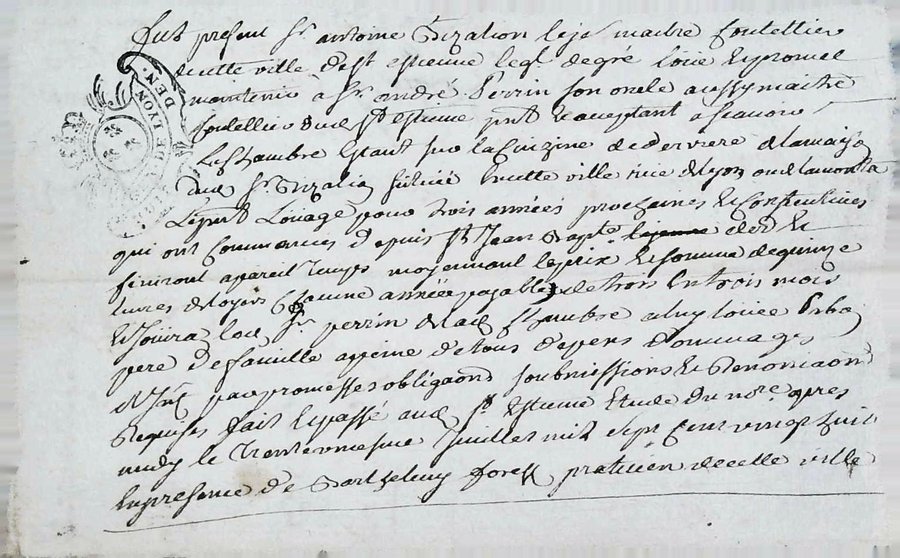 GEN. DE LYON DEN.
fut present Sr antoine lejé maitre Coutellier
de cette ville de st estienne lequel de gré Loüe et promet
maintenir a Sr andré Perrin son oncle aussy maitre
Coutellier dud St estienne pnt et acceptant a scavoir
La Chambre Estant sur la Cuizine de derriere de la maison
dud Sr scituée en cette ville rüe de lyon
Le pnt Loüage pour trois années prochaines et Consecutives
qui ont Commancés depuis St Jean Bapte dere Et
finiront a pareil temps moyennant le prix et somme de quinze
livres de loyer Chacune année payable de trois En trois mois
Et Joüira led Sr perrin de lad Chambre a luy loüée En bon
pere de famille a peine de tous depens dommages
et par promesses obligaons soubmissions Et Renonciaons
Requises fait et passé aud St Estienne Etude du nore apres
midy le Trente uniesme Juillet mil sept Cent vingt huit
En presence de Barthelemy forest praticien de celle ville